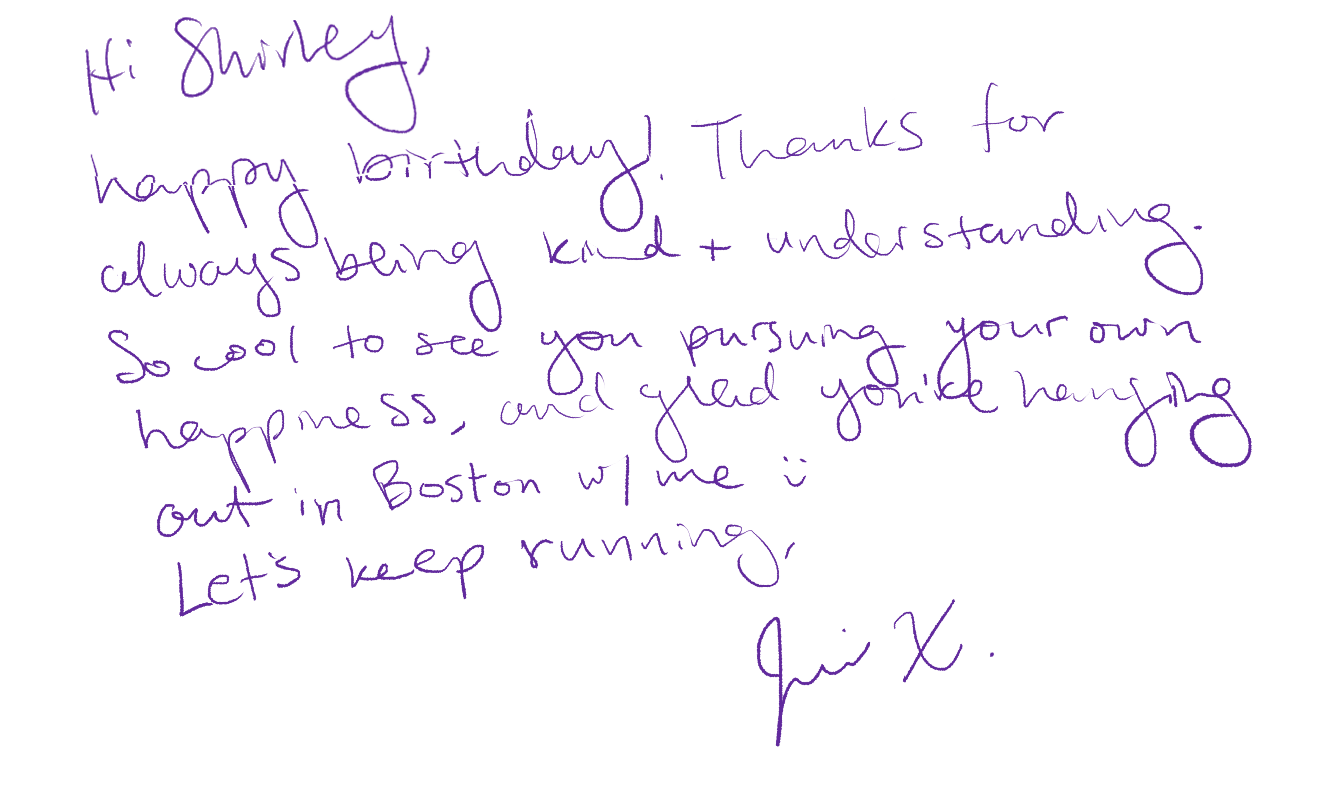 Hi Shirley,
happy birthday! Thanks for
always being kind + understanding.
So cool to see you pursuing your own
happiness, and glad you're hanging
out in Boston w/ me :)
Let's keep running,
X.